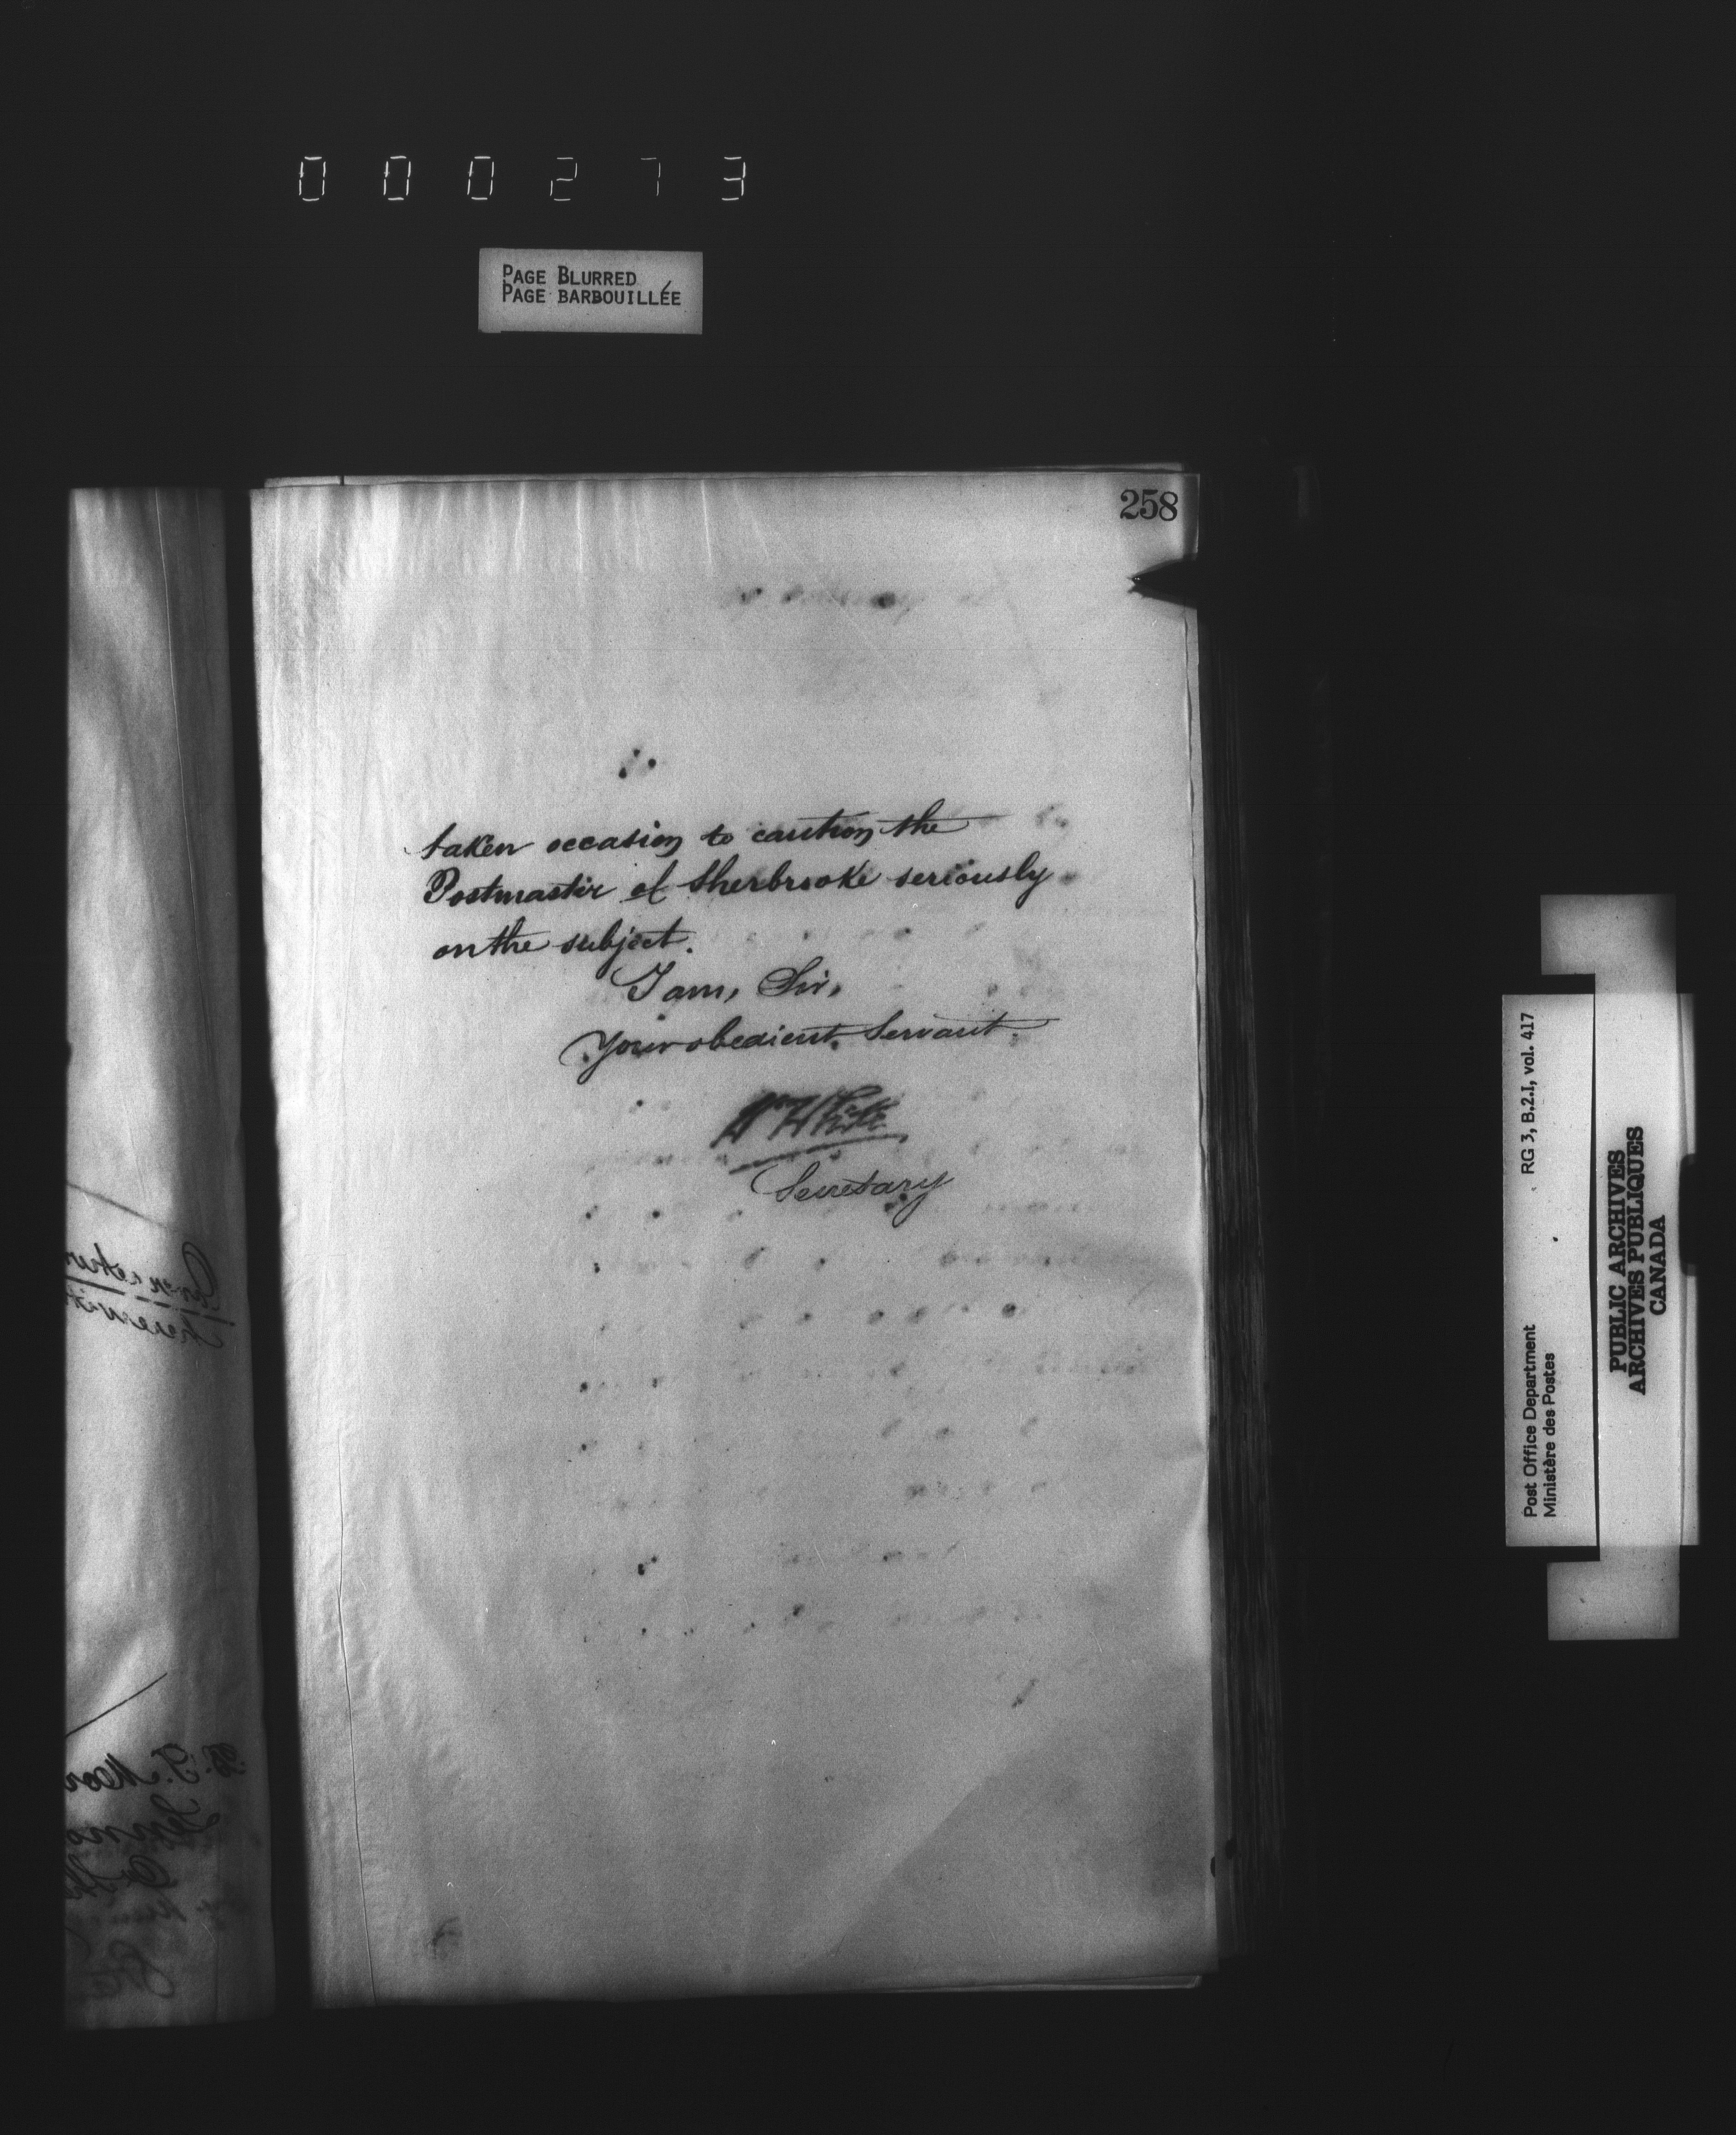 000273
PAGE BLURRED
PAGE BARBOUILLÉE
258
taken occasion to caution the
Postmaster of Sherbrooke seriously
on the subject.
I am, Sir,
Your obedient Servant.
Wm White
Secretary
Post Office Department RG 3, B.2.I, vol. 417
Ministère des Postes
PUBLIC ARCHIVES
ARCHIVES PUBLIQUES
CANADA